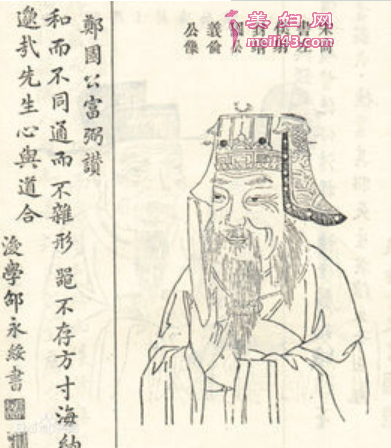 美妇网
meili43.com
書左
義倫
公像
鄭國公富弼讚
和而不同通而不雜形器不存方寸海納
邈哉先生心與道合
後學邵永綏書